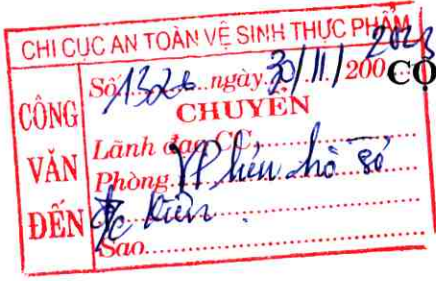 CHI CỤC AN TOÀN VỆ SINH THỰC PHẨM
CÔNG VĂN ĐẾN
Số 1326 ngày 30/11/2023 200
CHUYỂN
Lãnh đạo CC
Phòng VP lưu hồ sơ
Đ/c Kiên
Sao
CỘ